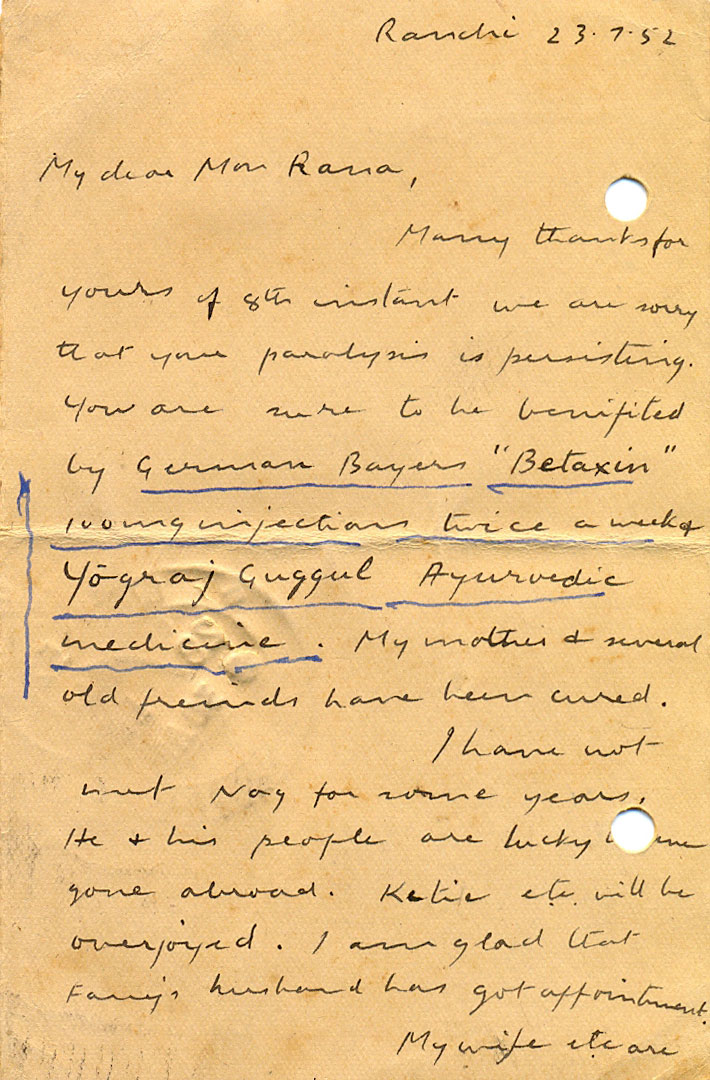 Ranchi 23.7.52
My dear Mon Rana,
Many thanks for
yours of 8th instant we are sorry
that your paralysis is persisting.
You are sure to be benifited
by German Bayers "Betaxin"
100mg injections twice a week &
Yōgraj Guggul Ayurvedic
medicine. My mother & several
old freinds have been cured.
I have not
met Nag for some years.
He & his people are lucky
gone abroad. Katie etc will be
overjoyed. I am glad that
husband has got appointment.
My wife etc are